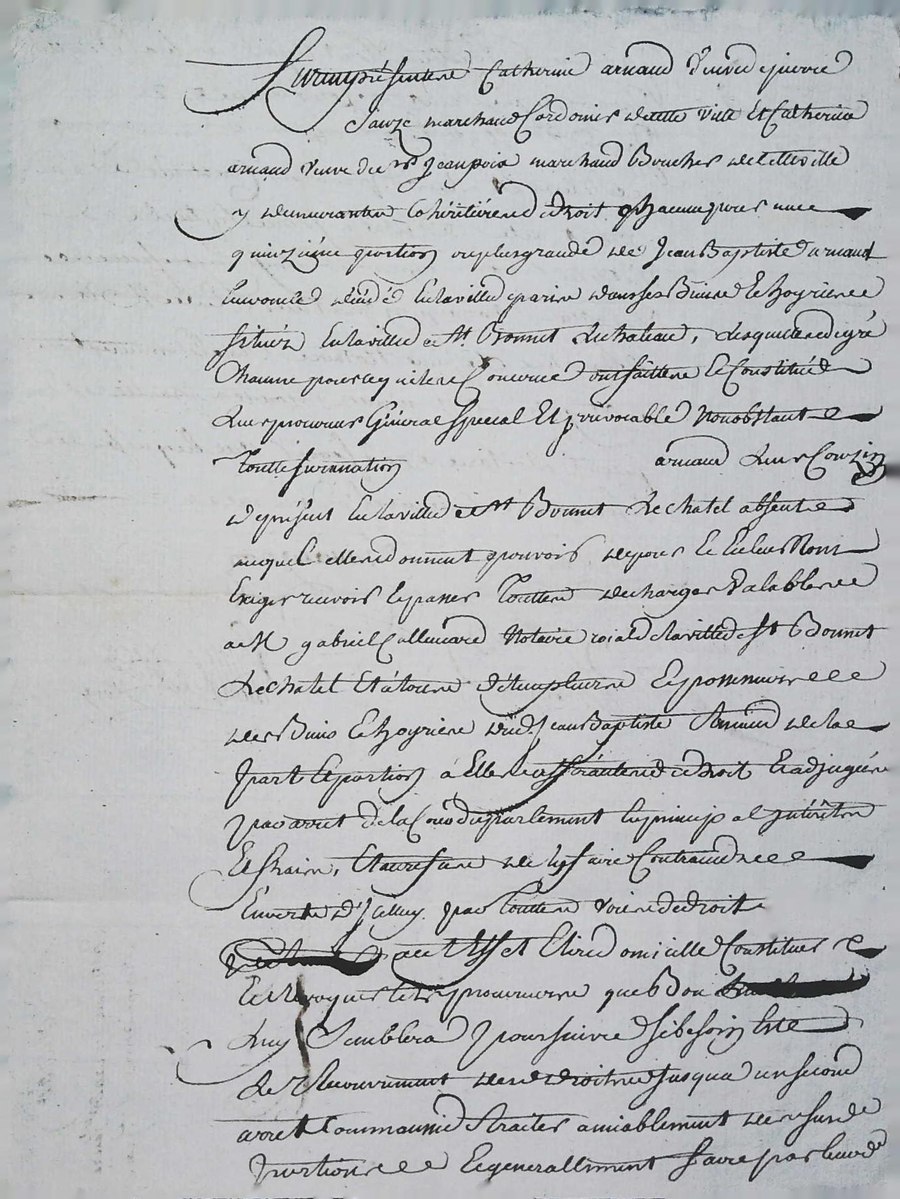 Furent présentes Catherine arnaud veuve de pierre
Sauze marchand Cordonier de cette ville Et Catherine
arnaud veuve de Jean pois marchand Boucher de cette ville
y demeurantes Cohéritières de Droit chacune pour une
quinzième portion ou plus grande de Jean Baptiste arnaud
décédé En la ville de paris dans ses Biens Et hoyries
situés En la ville de St Bonnet Le chateau, Lesquelles de gré
Chacune pour ce qui les Concerne ont faittes Et Constitué
Leur procureur Général Special Et irrévocable Nonobstant
toutte surannation arnaud Leur Couzin
de présent En la ville de St Bonnet Le chatel absent
auquel elles donnent pouvoir de pour Et En leur Nom
Exiger recevoir Et passer Touttes décharges valables
a M gabriel Notaire roial de la ville de St Bonnet
Le chatel Et à tous détempteurs Et possesseurs
des Biens Et hoyrie dud. Jean Baptiste Arnaud de la
part Et portion à Elles afférantes de Droit Et adjugées
par arret de la Cour du parlement En principal intérêts
Et fraix, Et au refus de les faire Contraindre
En vertu d'Icelluy par Touttes voies de droit
a cet Effet Elire domicille Constituer
Et Revoquer tels procureurs que Bon
Luy Semblera poursuivre si besoin Est
Le Recouvrement desd. Droits jusqua un second
arret traiter amiablement
portions Et generallement faire pour